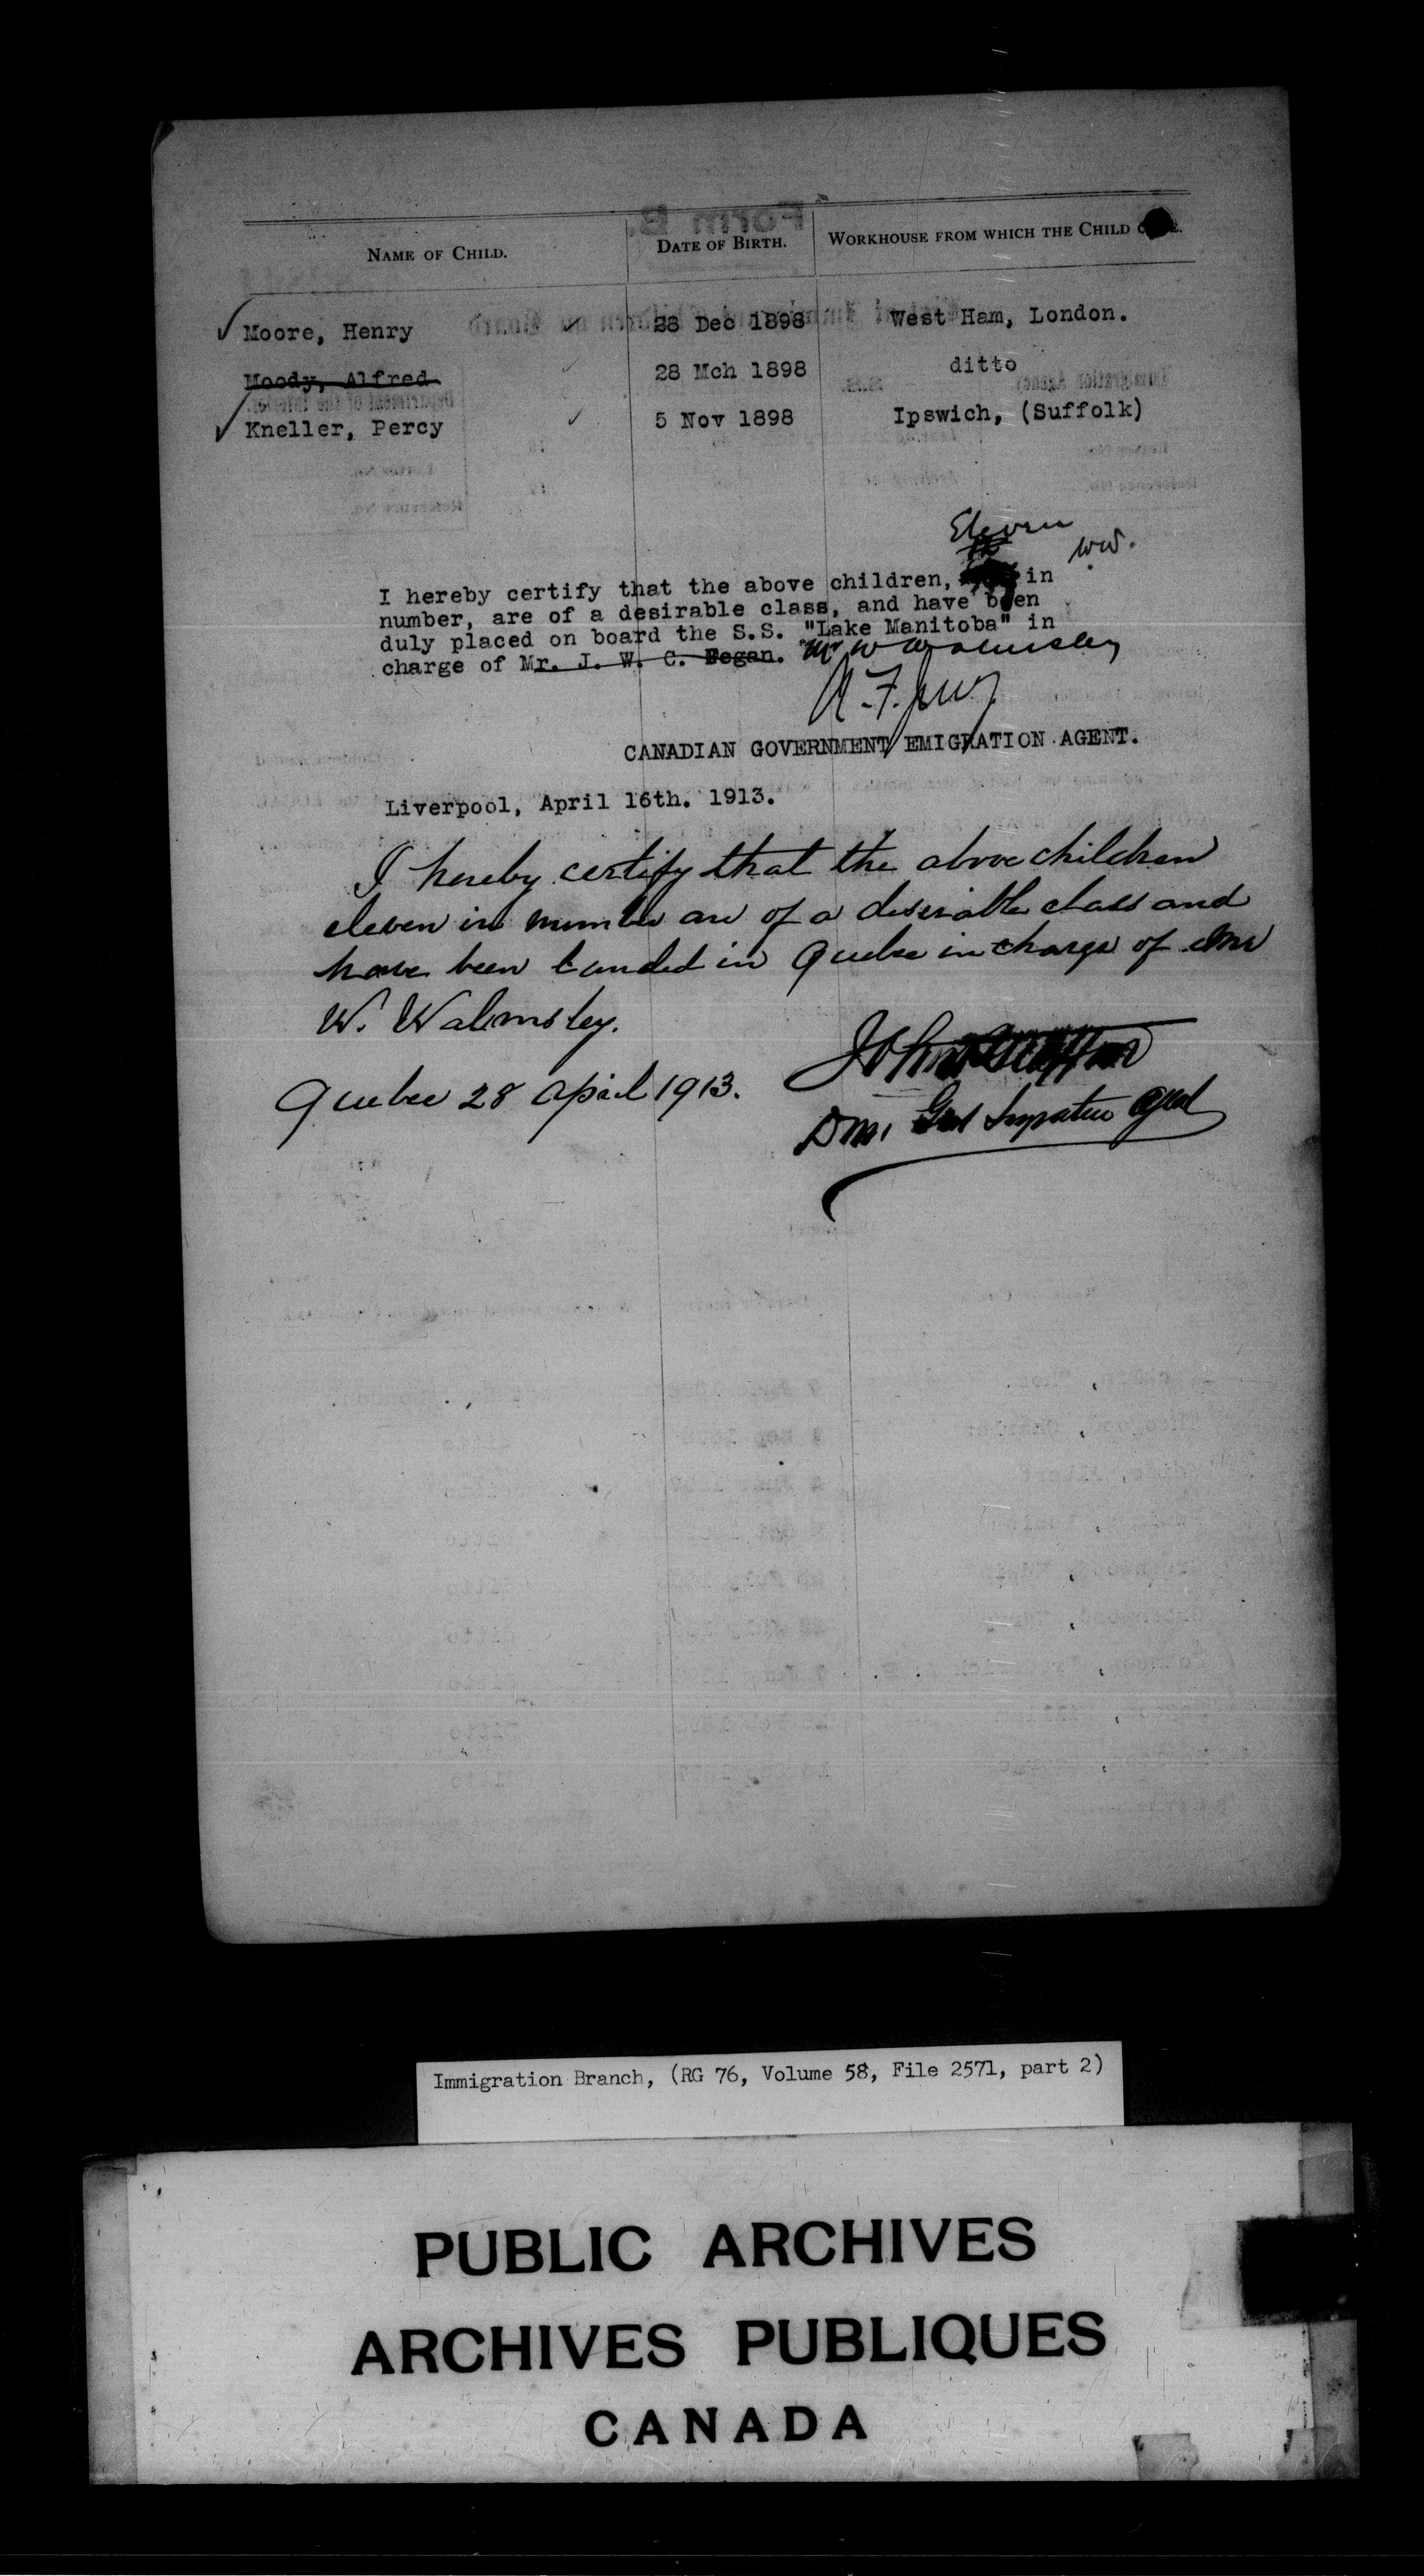 NAME OF CHILD. DATE OF BIRTH. WORKHOUSE FROM WHICH THE CHILD
Moore, Henry 28 Dec 1898 West Ham, London.
Moody, Alfred 28 Mch 1898 ditto
Kneller, Percy 5 Nov 1898 Ipswich, (Suffolk)
Eleven
W.W.
I hereby certify that the above children, in
number, are of a desirable class, and have been
duly placed on board the S.S. "Lake Manitoba" in
charge of Mr. J. W. C. Fegan. Mr W Walmsley
CANADIAN GOVERNMENT EMIGRATION AGENT.
Liverpool, April 16th. 1913.
I hereby certify that the above children
eleven in number are of a desirable class and
have been landed in Quebec in charge of Mr
W. Walmsley.
Quebec 28 April 1913.
Immigration Branch, (RG 76, Volume 58, File 2571, part 2)
PUBLIC ARCHIVES
ARCHIVES PUBLIQUES
CANADA